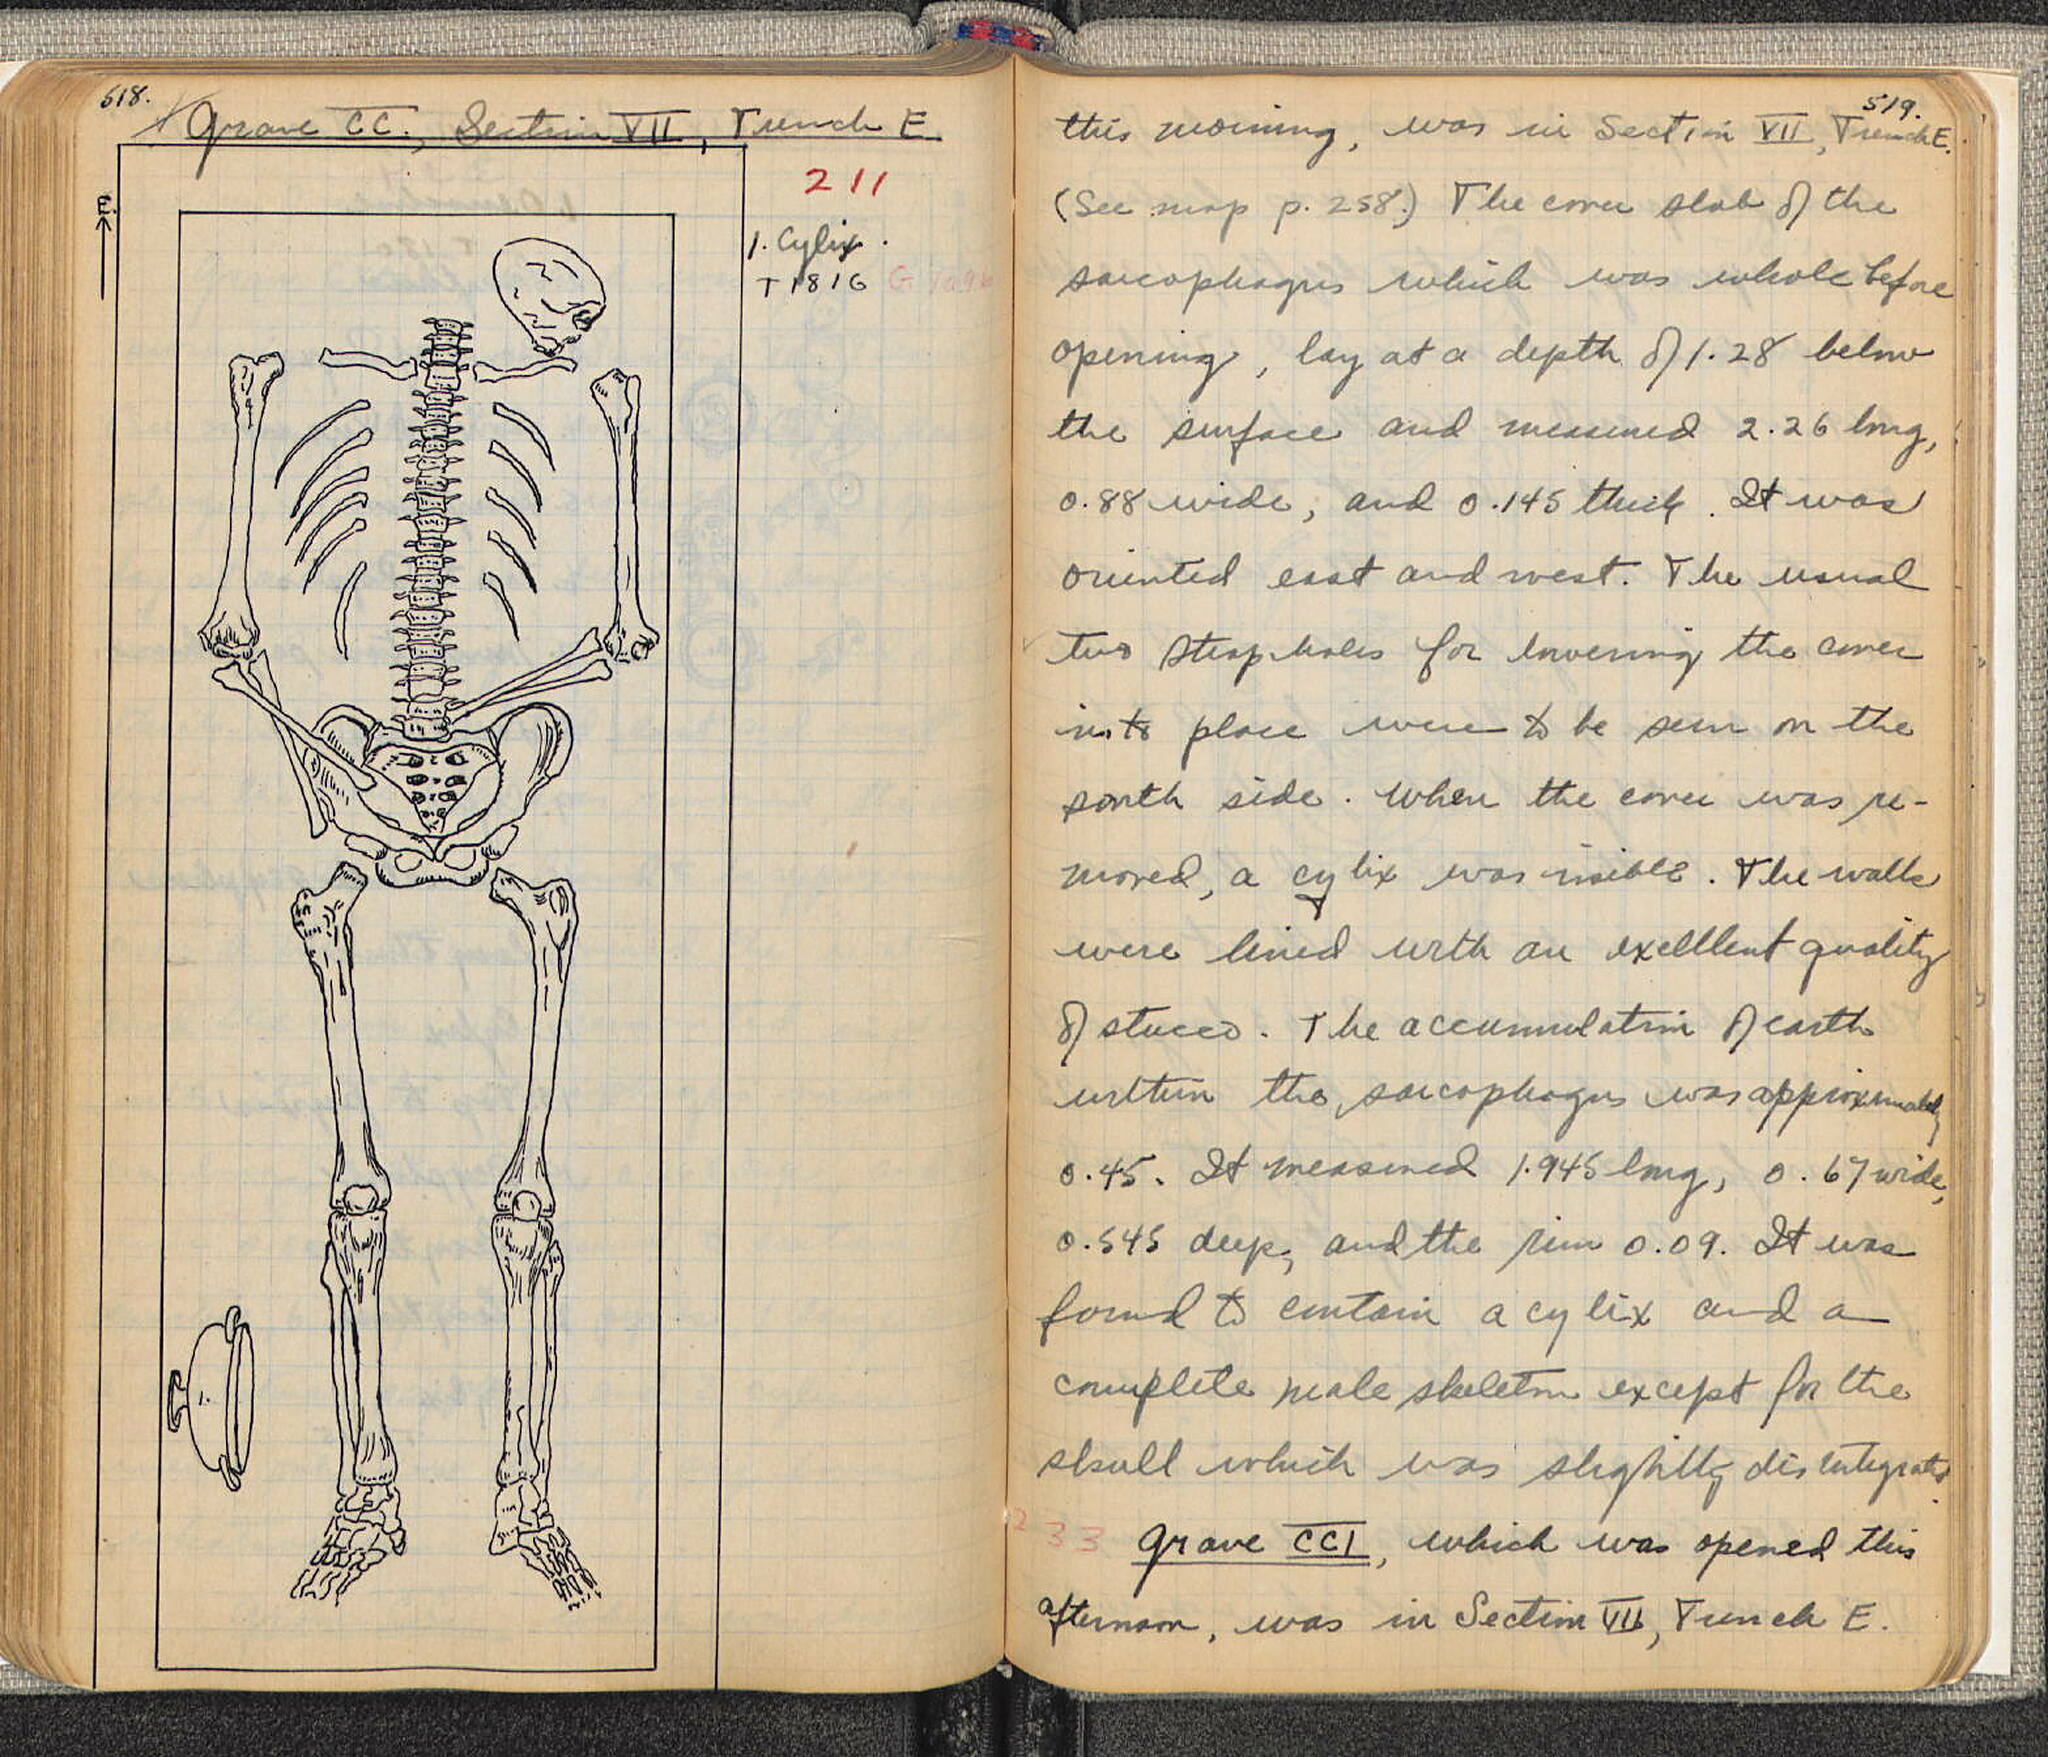 518.
Grave CC., Section VII, Trench E
E.
211
1. Cylix.
T 1816
1.
519.
this morning, was in Section VII, Trench E.
(See map p. 258.) The cover slab of the
sarcophagus which was whole before
opening, lay at a depth of 1.28 below
the surface and measured 2.26 long,
0.88 wide, and 0.145 thick. It was
oriented east and west. The usual
two strap holes for lowering the cover
into place were to be seen on the
south side. When the cover was re-
moved, a cylix was visible. The walls
were lined with an exellent quality
of stucco. The accumulation of earth
within the sarcophagus was approximately
0.45. It measured 1.945 long, 0.67 wide,
0.545 deep, and the rim 0.09. It was
found to contain a cylix and a
complete male skeleton except for the
skull which was slightly disintegrated.
233 Grave CCI, which was opened this
afternoon, was in Section VII, Trench E.